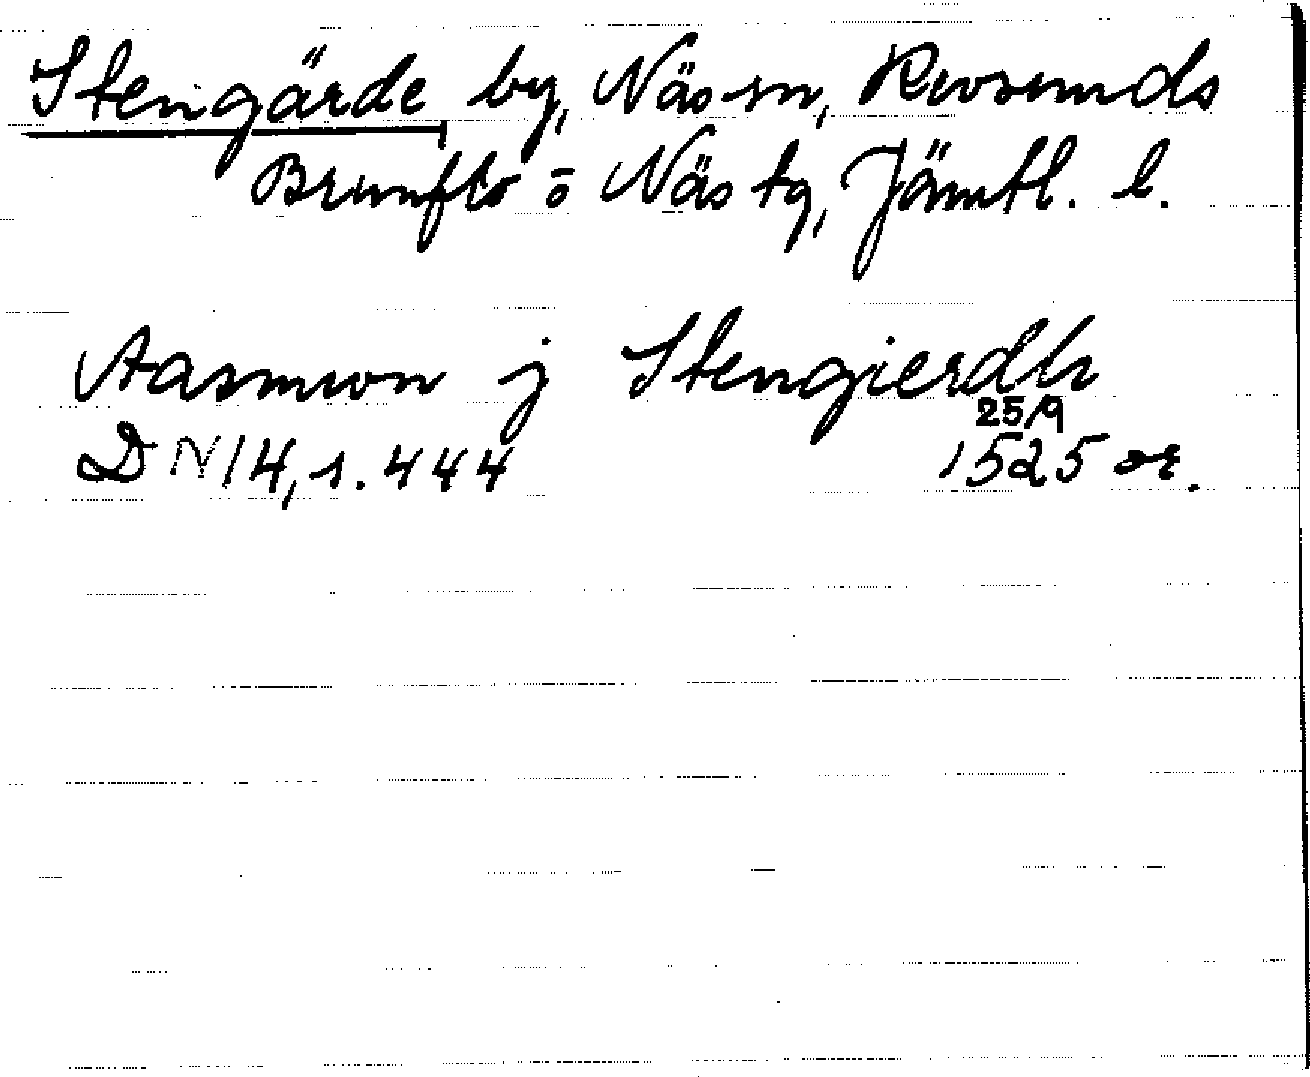 Stengärde by, Näs sn, Revsunds
Brunflo o Näs tg, Jämtl. l.
Aasmwon j Stengierdh
25/9
DN 14, s. 444 1525 or.